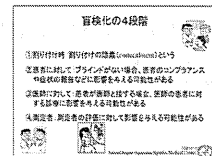 盲検化の4段階
①割り付け時 割り付けの隠蔽(concealment)という
②患者に対して ブラインドがない場合、患者のコンプライアンス
や症状の報告などに影響を与える可能性がある
③医師に対して 患者が医師と接する場合、医師の患者に対
する診療に影響を与える可能性がある
④測定者 測定者の評価に対して影響を与える可能性がある